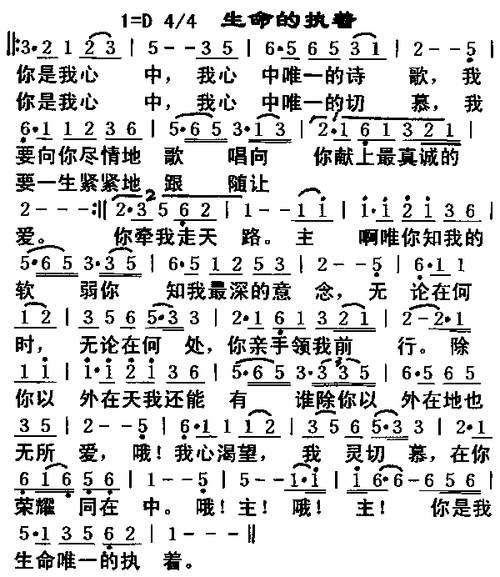 1=D 4/4 生命的执着
‖:3·2 1 2 3 | 5 - - 3 5 | 6·5 6 5 3 1 | 2 - - 5 |
你是我心 中，我心 中唯一的诗 歌，我
你是我心 中，我心 中唯一的切 慕，我
6·1 1 2 3 6 | 5·6 5 3·1 3 | 2·1 6 1 3 2 1 |
要向你尽情地 歌 唱向 你献上最真诚的
要一生紧紧地 跟 随让
2 - - - :‖ 2·3 5 6 2 | 1 - - 1 i | i·i 2 i 3 6 |
爱。 你牵我走天 路。主 啊唯你知我的
5·6 5 3·3 5 | 6·5 1 2 5 3 | 2 - - 5 | 6·1 1
软 弱你 知我最深的意 念，无 论在何
1 2 | 3 5 6 5·3 3 | 2·1 6 1 3 2 1 | 2 - 2·1 |
时， 无论在何 处，你亲手领我前 行。除
i i | i·i 2 i 3 6 | 5·6 5 3·3 3 | 6·5 6 5
你以 外在天我还能 有 谁除你以 外在地也
3 5 | 2 - - 5 | 6·1 1 1 2 | 3 5 6 5·3 3 | 2·1
无所 爱，哦！我心渴望， 我 灵切慕，在你
6 1 6 5 6 | 1 - - 5 | 5 - - i·i | i 6·6 - 6 5 6 |
荣耀 同在 中。哦！主！哦！ 主！ 你是我
5·1 3 5 6 2 | 1 - - - ‖
生命唯一的执 着。